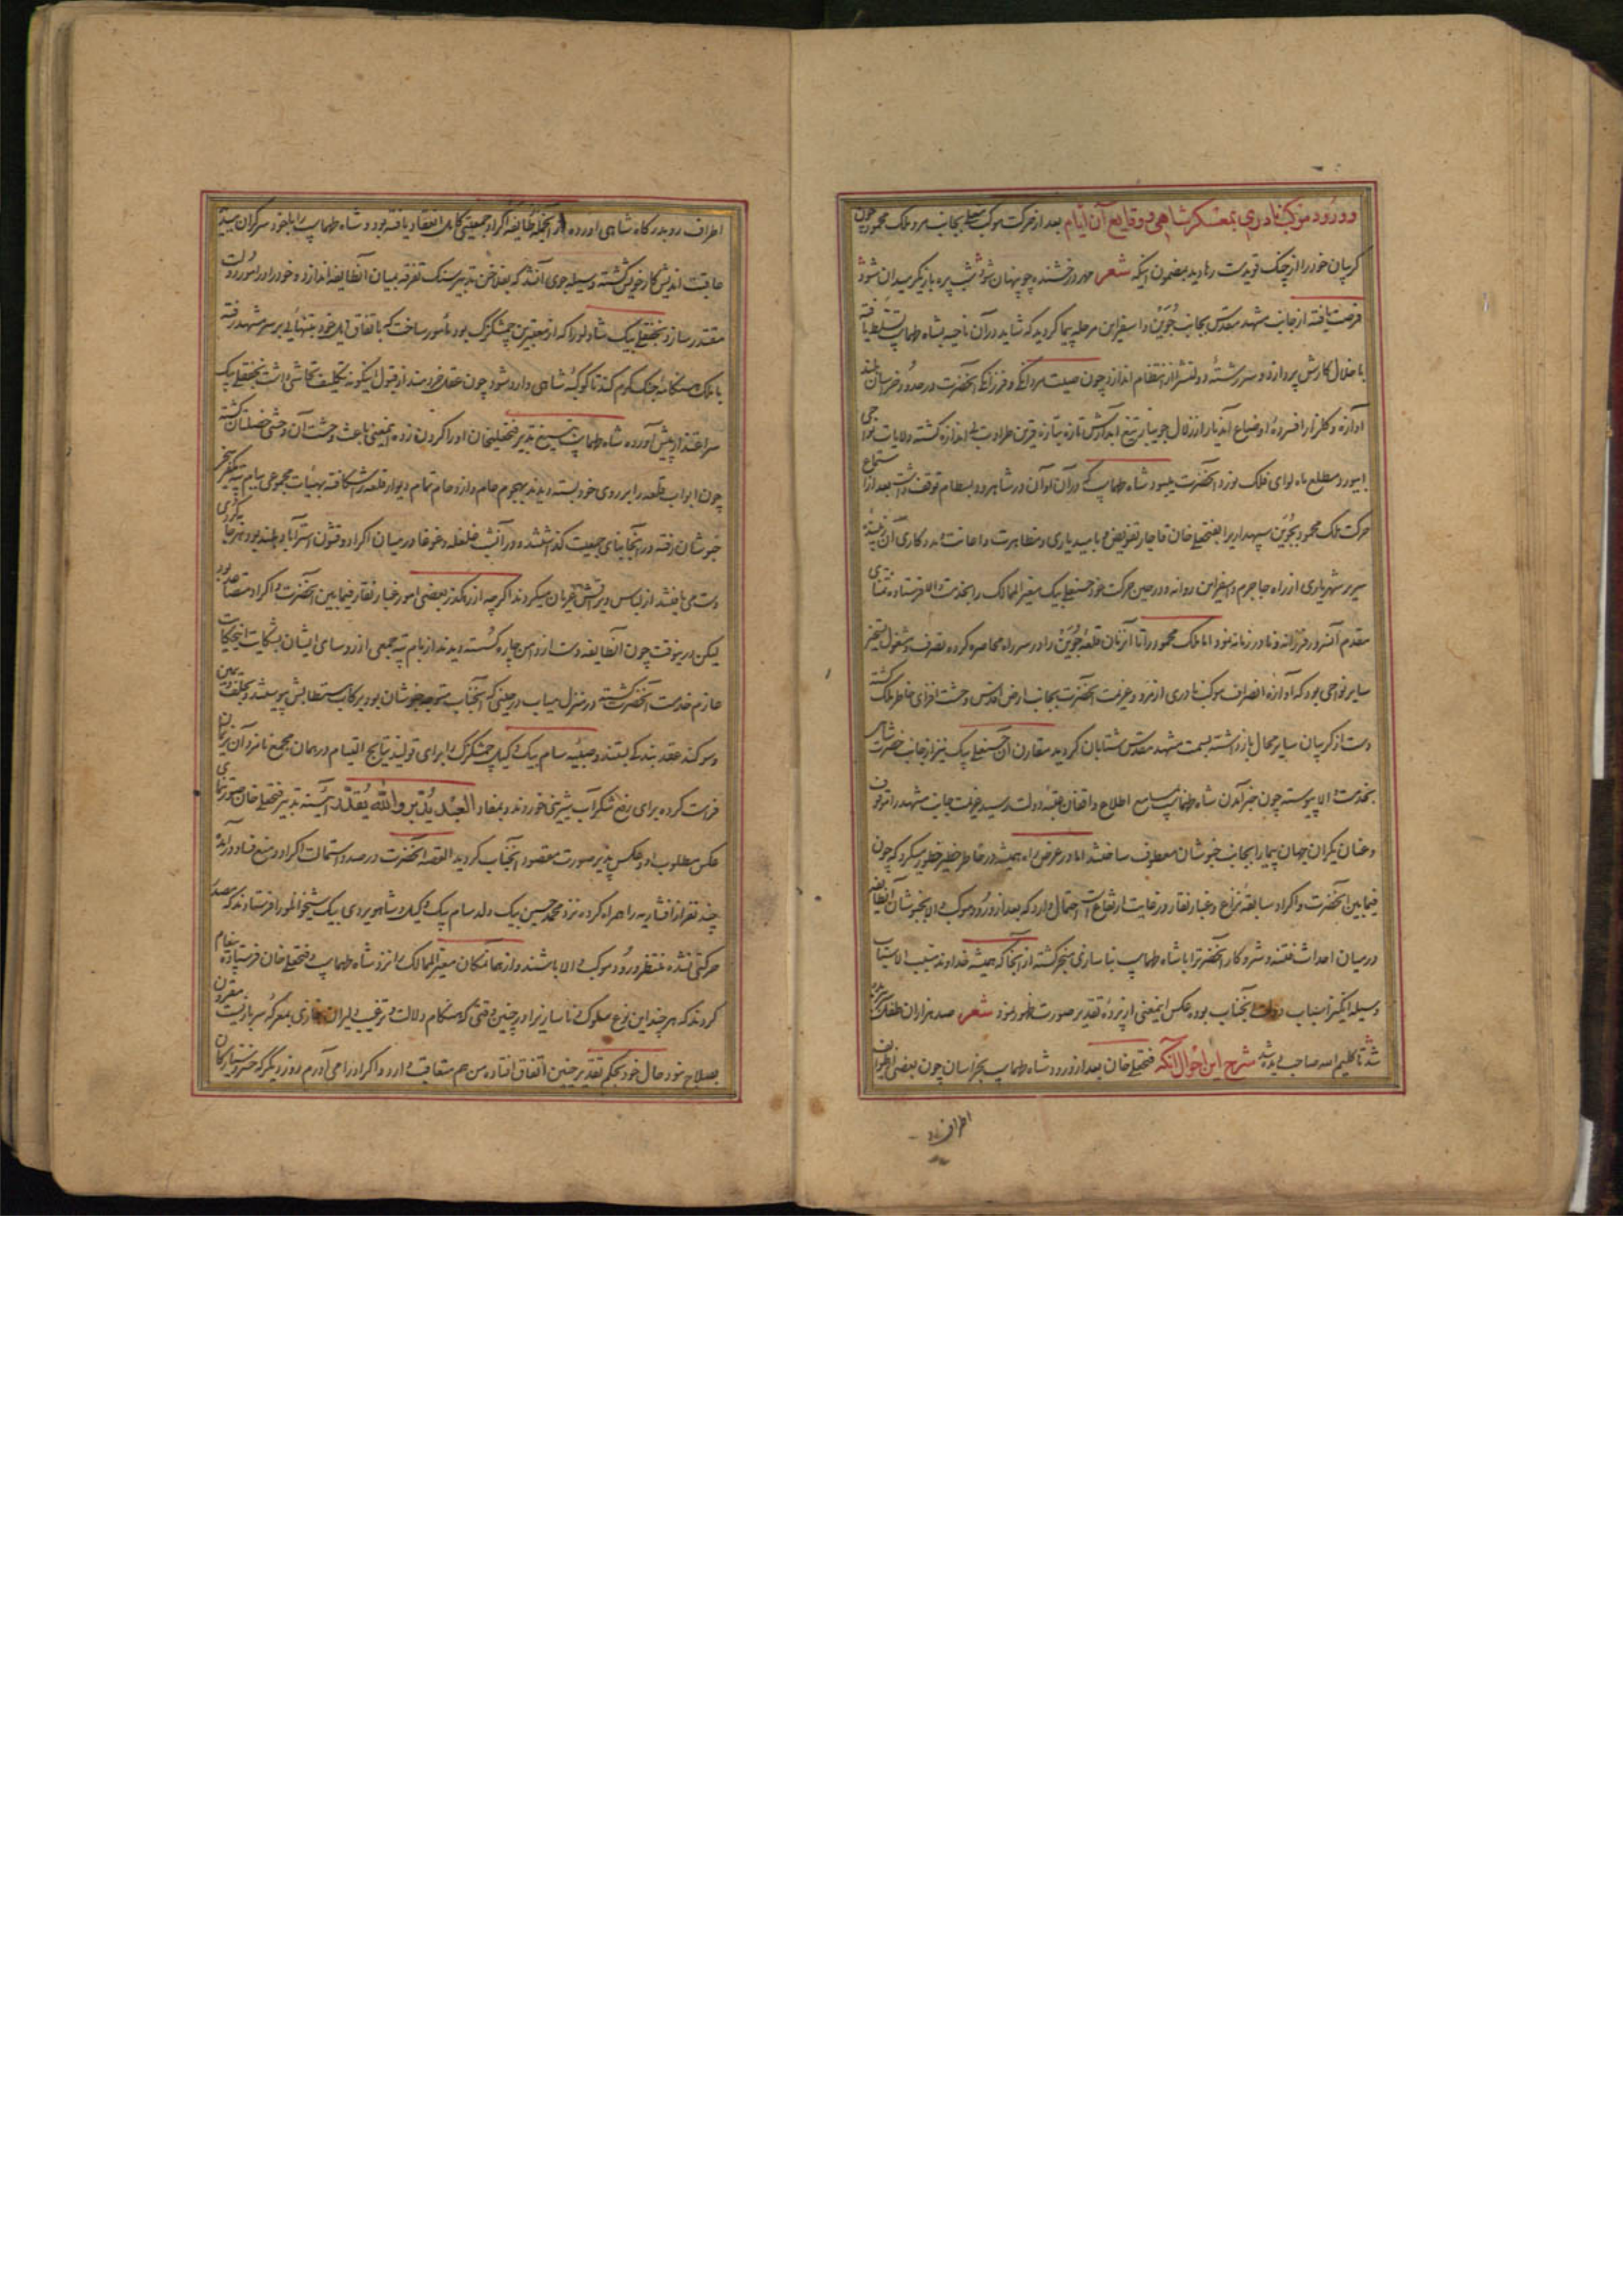 در ورود موکب نادری بمعسکر شاهی و وقایع آن ایام بعد از حرکت موکب معلی بجانب مرو ملک محمود چون
کریبان خود را از چنک قویدست رهاوید بمضمون اینکه شعر مهر درخشنده چو پنهان شود شب پره بازیکر میدان شود
فرصت یافته از جانب مشهد مقدس بجانب جوین و اسفراین مرحله پیما کردید که شاید در آن ناحیه بشاه طهماسب تسلط یافته
باخلال کارش پردازد و سررشته دولتش را از انتظام اندازد چون صیت مردانکی و فرزانکی آنحضرت در حدود خراسان بلند
آوازه و کلزار افسرده اوضاع آندیار از زلال جویبار تیغ آبدارش تازه بتازه قرین طراوت بی اندازه کشته ولایات نواحی
ابیورد مطلع ماه لوای فلک نورد آنحضرت میبود شاه طهماسب که در آن اوان در شاهرود و بسطام توقف داشت بعد از استماع
حرکت ملک محمود بجوین سپهداریرا بفتحعلی خان قاجار تفویض و بامید یاری و مظاهرت و اعانت و مددکاری آن زیبنده
سریر شهریاری از راه جاجرم و اسفراین روانه و در حین حرکت خود حسنعلی بیک معیر الممالک را بخدمت والا فرستاده تمنای
مقدم آنسرور فرزانه و نادر زمانه نمود اما ملک محمود را تا آنزمان قلعه جوین را در سر راه محاصره کرده تصرف و مشغول تسخیر
سایر نواحی بود که آوازه انصراف موکب نادری از مرو و عزیمت آنحضرت بجانب ارض اقدس وحشت افزای خاطر ملک کشته
دست از کریبان سایر محال بازداشته بسمت مشهد مقدس شتابان کردید مقارن آن حسنعلی بیک نیز از جانب حضرت شاهی
بخدمت والا پیوسته چون خبر آمدن شاه طهماسب بمسامع اطلاع واقفان عتبه دولت رسید عزیمت جانب مشهد را موقوف
و عنان یکران جهان پیما را بجانب خبوشان معطوف ساختند اما در عرض راه همیشه در خاطر خطیر خطور میکرد که چون
فیمابین آنحضرت و اکراد سابقه نزاع و غبار نقار در غایت ارتفاع است احتمال دارد که بعد از ورود موکب والا بخبوشان آنطایفه
در میان احداث فتنه و شر و کار آنحضرترا با شاه طهماسب بناسازی منجر کشته از آنجا که همیشه خداوند مسبب الاسباب
وسیله انکیز اسباب دولت آنجناب بوده عکس اینمعنی از پرده تقدیر صورت ظهور نمود شعر صد هزاران طفل سر ببریده
شد تا کلیم الله صاحب دیده شد شرح این احوال آنکه فتحعلی خان بعد از ورود شاه طهماسب بخراسان چون بعضی از طوایف
اطراف رو
اطراف رو بدرکاه شاهی اورده از آنجمله طایفه اکراد جمعیتی کامل انعقاد یافته بود و شاه طهماسب را با خود سرکران میدید
عاقبت اندیش کار خویش کشته وسیله جوی آنشد که بفلاخن تدبیر سنک تفرقه بمیان آنطایفه اندازد و خود را در امور دولت
مقتدر سازد نجفقلی بیک شادلو را که از معتبرین چمشکزک بود مأمور ساخت که باتفاق ایل خود بتنهایی بر سر مشهد رفته
با ملک هنکامه جنک کرم کند تا کوکبه شاهی وارد شود چون عقل خردمند از قبول اینکونه تکلیف تحاشی داشت نجفقلی بیک
سر اعتذار پیش آورده شاه طهماسب به تیغ تدبیر فتحعلیخان او را کردن زده اینمعنی باعث وحشت آن وحشی خصلتان کشته
چون ابواب قلعه را بر روی خود بسته دیدند بهجوم عام و ازدحام تمام دیوار قلعه را شکافته بهیئات مجموعی
خبوشان رفته در آنجا بنای جمعیت کذاشتند و در آنشب غلغله و غوغا در میان اکراد و قشون استرآباد بلند بود بهر جا بکردی
دست می یافتند از لباس و یراقش عریان میکردند اکرچه از رهکذر بعضی امور غبار نقار فیمابین آنحضرت و اکراد متصاعد بود
لیکن درینوقت چون آنطایفه دست از دامن چاره کسسته دیدند جمعی از روسای ایشان بشکایت این حکایت
عازم خدمت آنحضرت کشته در منزل میاب در حینی که آنجناب متوجه خبوشان بود برکاب مستطابش پیوستند و بحلف یمین
و سوکند عقد بندکی بستند و صبیه سام بیک وکیل چمشکزک را برای تولید نتایج التیام در همان مجمع نامزد آن
کرده برای رفع شکرآب شیرینی خوردند و بمفاد العبد یدبر والله یقدر آئینه تدبیر فتحعلی خان صورت نمای
عکس مطلوب او و عکس پذیر صورت مقصود آنجناب کردید القصه آنحضرت در صدد استمالت اکراد و منع فساد درآمده
چند نفر از افشاریه را همراه کرده نزد محمد حسین بیک ولد سام بیک وکیل و شاهویردی بیک شیخوانلو فرستادند که مصدر
حرکتی نشده منتظر ورود موکب والا باشند و از همانمکان معیر الممالک را نزد شاه طهماسب و فتحعلی خان فرستاده پیغام
کردند که هر چند این نوع سلوک ناساز نیز در چنین وقتی که هنکام دلالت و ترغیب دلیران غازی بمعرکه سربازیست مقرون
بصلاح نبود حال خود بحکم تقدیر چنین اتفاق افتاده من هم متعاقب وارد و اکراد را می آورم روز دیکر که خسرو سیارکان